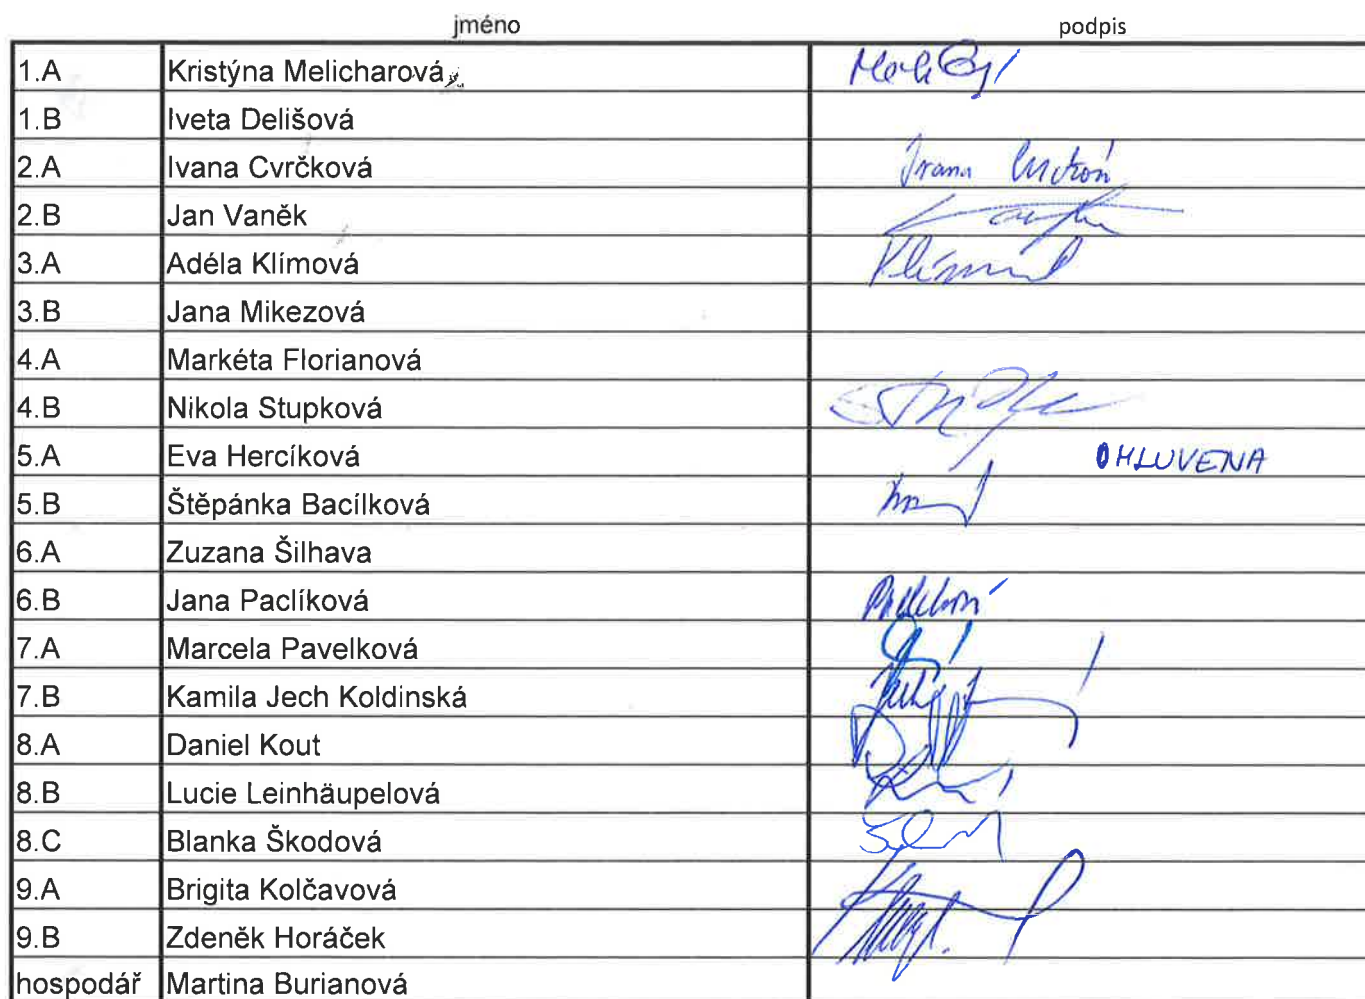 jméno podpis
1.A Kristýna Melicharová
1.B Iveta Delišová
2.A Ivana Cvrčková Ivana
2.B Jan Vaněk
3.A Adéla Klímová Klímová
3.B Jana Mikezová
4.A Markéta Florianová
4.B Nikola Stupková
5.A Eva Hercíková OMLUVENA
5.B Štěpánka Bacílková
6.A Zuzana Šilhava
6.B Jana Paclíková
7.A Marcela Pavelková
7.B Kamila Jech Koldinská
8.A Daniel Kout
8.B Lucie Leinhäupelová
8.C Blanka Škodová
9.A Brigita Kolčavová
9.B Zdeněk Horáček
hospodář Martina Burianová